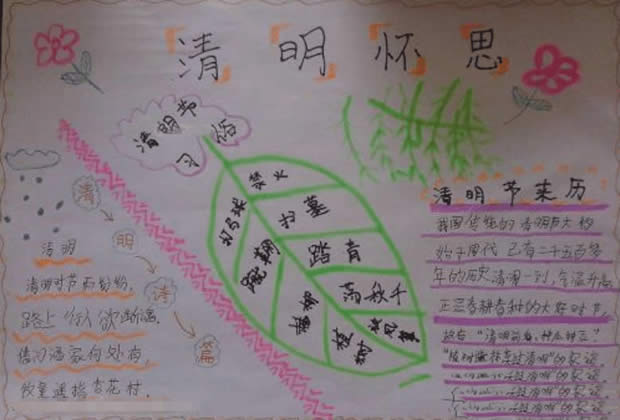 清明怀思
清明节
习俗
禁火
扫墓
打马球
踏青
蹴鞠
荡秋千
插柳
植树
放风筝
清
明
诗
篇
清明
清明时节雨纷纷，
路上行人欲断魂。
借问酒家何处有，
牧童遥指杏花村．
清明节来历
我国传统的清明节大约
始于周代 已有二千五百多
年的历史 清明一到，气温升高，
正是春耕春种的大好时节，
故有“清明前后，种瓜种豆”